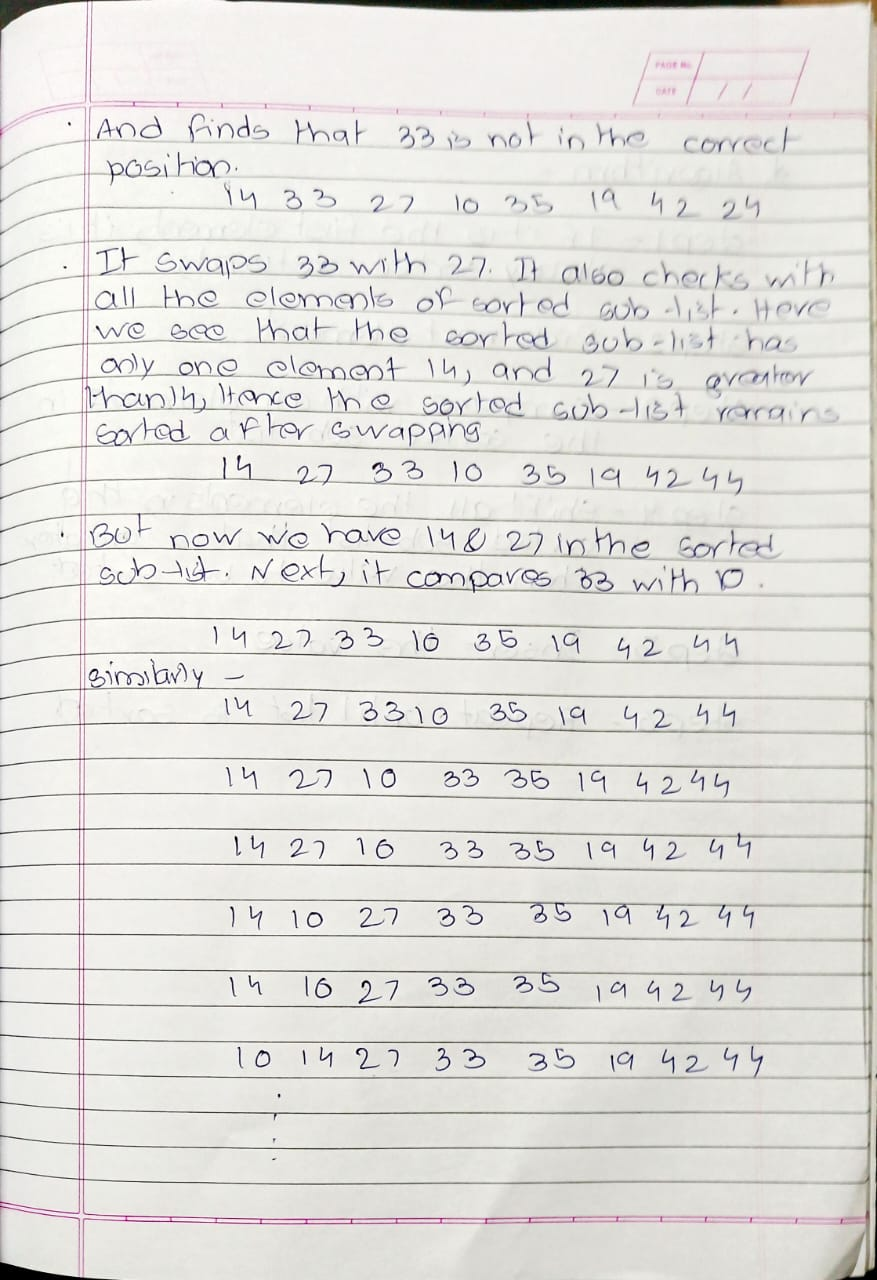 PAGE No.
DATE / /
· And finds that 33 is not in the correct
position.
14 33 27 10 35 19 42 24
· It swaps 33 with 27. It also checks with
all the elements of sorted sub-list. Here
we see that the sorted sub-list has
only one element 14, and 27 is greater
than 14, Hence the sorted sub-list remains
sorted after swapping
14 27 33 10 35 19 42 44
· But now we have 14 & 27 in the sorted
sub-list. Next, it compares 33 with 10.
14 27 33 10 35 19 42 44
Similarly -
14 27 33 10 35 19 42 44
14 27 10 33 35 19 42 44
14 27 10 33 35 19 42 44
14 10 27 33 35 19 42 44
14 10 27 33 35 19 42 44
10 14 27 33 35 19 42 44